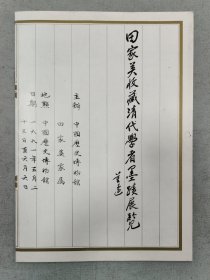 田家英收藏清代學者墨蹟展覽
董邊
主辦 中國歷史博物館
田家英家屬
地點 中國歷史博物館
日期 一九九一年五月二
十三日至六月六日